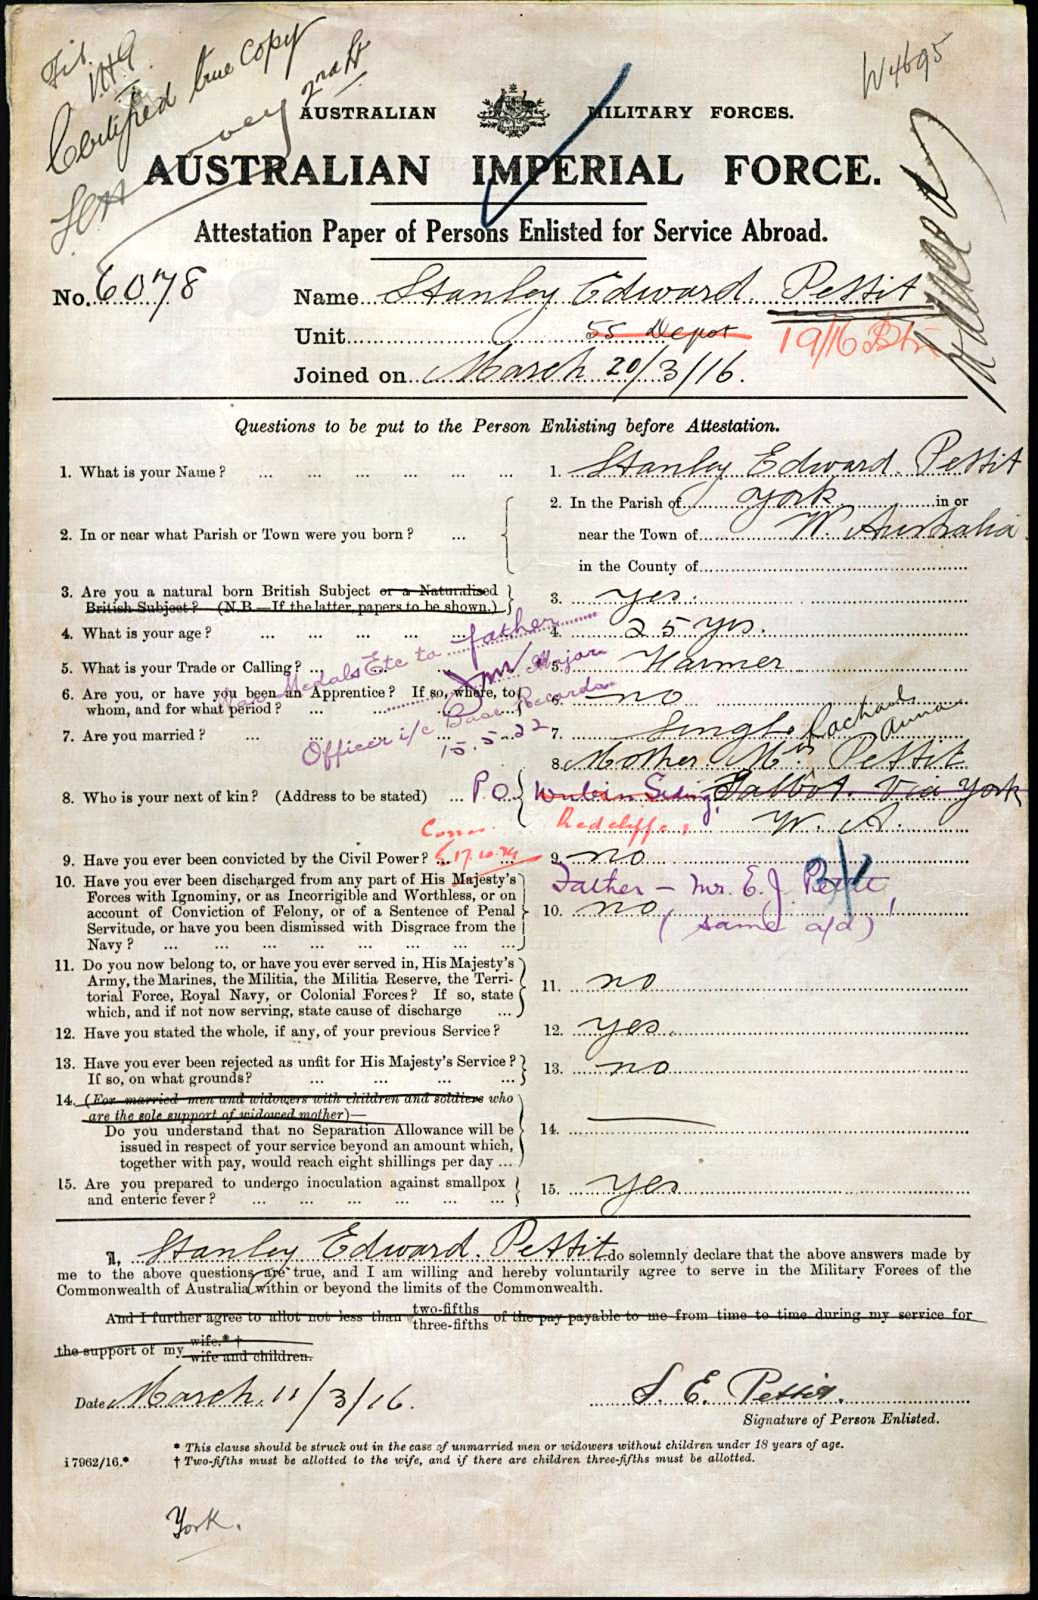 Certified true copy
2nd Lt
W4695
AUSTRALIAN MILITARY FORCES.
AUSTRALIAN IMPERIAL FORCE.
Attestation Paper of Persons Enlisted for Service Abroad.
No. 6078
Name Stanley Edward Pettit
Unit 55 Depot 19/16 Btn
Joined on March 20/3/16.
Questions to be put to the Person Enlisting before Attestation.
1. What is your Name? ... 1. Stanley Edward. Pettit
2. In or near what Parish or Town were you born? ...
2. In the Parish of York in or
near the Town of W. Australia
in the County of
3. Are you a natural born British Subject or a Naturalised
British Subject? (N.B.—If the latter, papers to be shown.) 3. yes.
4. What is your age? ... 4. 25 yrs.
5. What is your Trade or Calling? ... 5. Farmer
6. Are you, or have you been an Apprentice? If so, where, to
whom, and for what period? ... 6. no
7. Are you married? ... 7. Single
War Medals Etc to father
Major
Officer i/c Base Records
15.5.22
Rachael
Anna
8. Mother. Mrs Pettit
8. Who is your next of kin? (Address to be stated) ... P.O. Wubin Siding, Talbot. Via York
Redcliffe, W. A.
17.10.
9. Have you ever been convicted by the Civil Power? ... 9. no
10. Have you ever been discharged from any part of His Majesty's
Forces with Ignominy, or as Incorrigible and Worthless, or on
account of Conviction of Felony, or of a Sentence of Penal
Servitude, or have you been dismissed with Disgrace from the
Navy? ... 10. no
Father – Mr. E. J. Pettit
(same a/d)
11. Do you now belong to, or have you ever served in, His Majesty's
Army, the Marines, the Militia, the Militia Reserve, the Terri-
torial Force, Royal Navy, or Colonial Forces? If so, state
which, and if not now serving, state cause of discharge ... 11. no
12. Have you stated the whole, if any, of your previous Service? 12. yes.
13. Have you ever been rejected as unfit for His Majesty's Service?
If so, on what grounds? ... 13. no
14. (For married men and widowers with children and soldiers who
are the sole support of widowed mother)—
Do you understand that no Separation Allowance will be
issued in respect of your service beyond an amount which,
together with pay, would reach eight shillings per day ... 14.
15. Are you prepared to undergo inoculation against smallpox
and enteric fever? ... 15. yes
I, Stanley Edward. Pettit do solemnly declare that the above answers made by
me to the above questions are true, and I am willing and hereby voluntarily agree to serve in the Military Forces of the
Commonwealth of Australia within or beyond the limits of the Commonwealth.
And I further agree to allot not less than two-fifths three-fifths of the pay payable to me from time to time during my service for
the support of my wife.*† wife and children.
Date March. 11/3/16.
S. E. Pettit.
Signature of Person Enlisted.
* This clause should be struck out in the case of unmarried men or widowers without children under 18 years of age.
i 7962/16.* † Two-fifths must be allotted to the wife, and if there are children three-fifths must be allotted.
York.